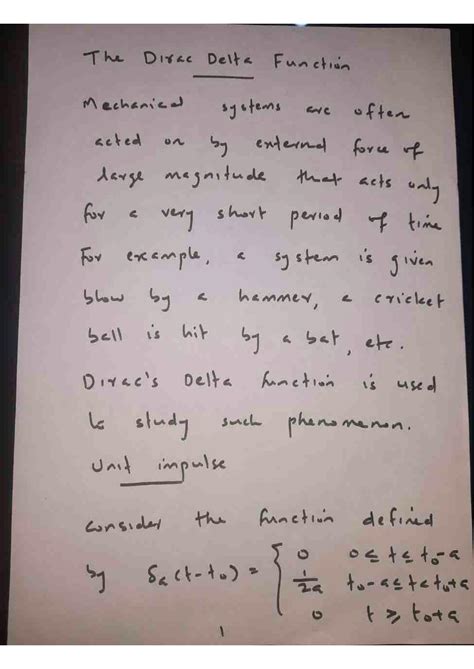 The Dirac Delta Function
Mechanical systems are often
acted on by external force of
large magnitude that acts only
for a very short period of time
For example, a system is given
blow by a hammer, a cricket
ball is hit by a bat, etc.
Dirac's Delta function is used
to study such phenomenon.
Unit impulse
consider the function defined
by δa(t-t₀) = { 0 0 ≤ t ≤ t₀-a
1/2a t₀-a ≤ t < t₀+a
0 t ≥ t₀+a
1